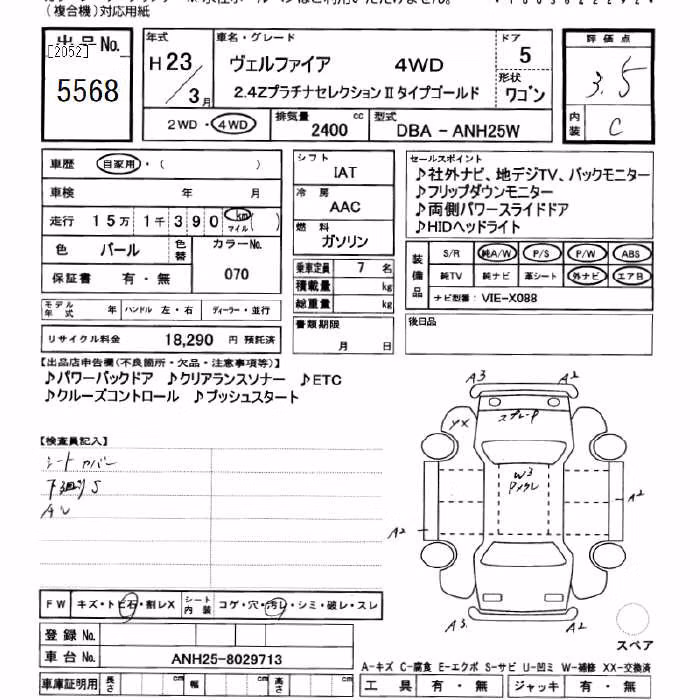 (複合機)対応用紙
出品No.
[2052]
5568
年式
H23/3月
車名・グレード
ヴェルファイア 4WD
2.4ZプラチナセレクションⅡタイプゴールド
ドア
5
形状
ワゴン
2WD・4WD
排気量 2400 cc
型式 DBA-ANH25W
評価点
3.5
内装
C
車歴 自家用・( )
車検 年 月
走行 15万1千390 km マイル ( )
色 パール
色替
カラーNo.
070
保証書 有・無
モデル年式 年
ハンドル 左・右
ディーラー・並行
リサイクル料金 18,290 円 預託済
シフト
IAT
冷房
AAC
燃料
ガソリン
乗車定員 7 名
積載量 kg
総重量 kg
書類期限
月 日
セールスポイント
♪社外ナビ、地デジTV、バックモニター
♪フリップダウンモニター
♪両側パワースライドドア
♪HIDヘッドライト
装備品
S/R 純A/W P/S P/W ABS
純TV 純ナビ 革シート 外ナビ エアB
ナビ型番: VIE-X088
後日品
【出品店申告欄(不良箇所・欠品・注意事項等)】
♪パワーバックドア ♪クリアランスソナー ♪ETC
♪クルーズコントロール ♪プッシュスタート
【検査員記入】
シートカバー
下廻りS
AU
A3
A2
スプレーP
YX
W3
アメクレ
A2
A2
A3
A2
スペア
FW キズ・トビ石・割レX
シート内装 コゲ・穴・汚レ・シミ・破レ・スレ
登録No.
車台No. ANH25-8029713
A-キズ C-腐食 E-エクボ S-サビ U-凹ミ W-補修 XX-交換済
車庫証明用 長さ cm 幅 cm 高さ cm
工具 有・無 ジャッキ 有・無